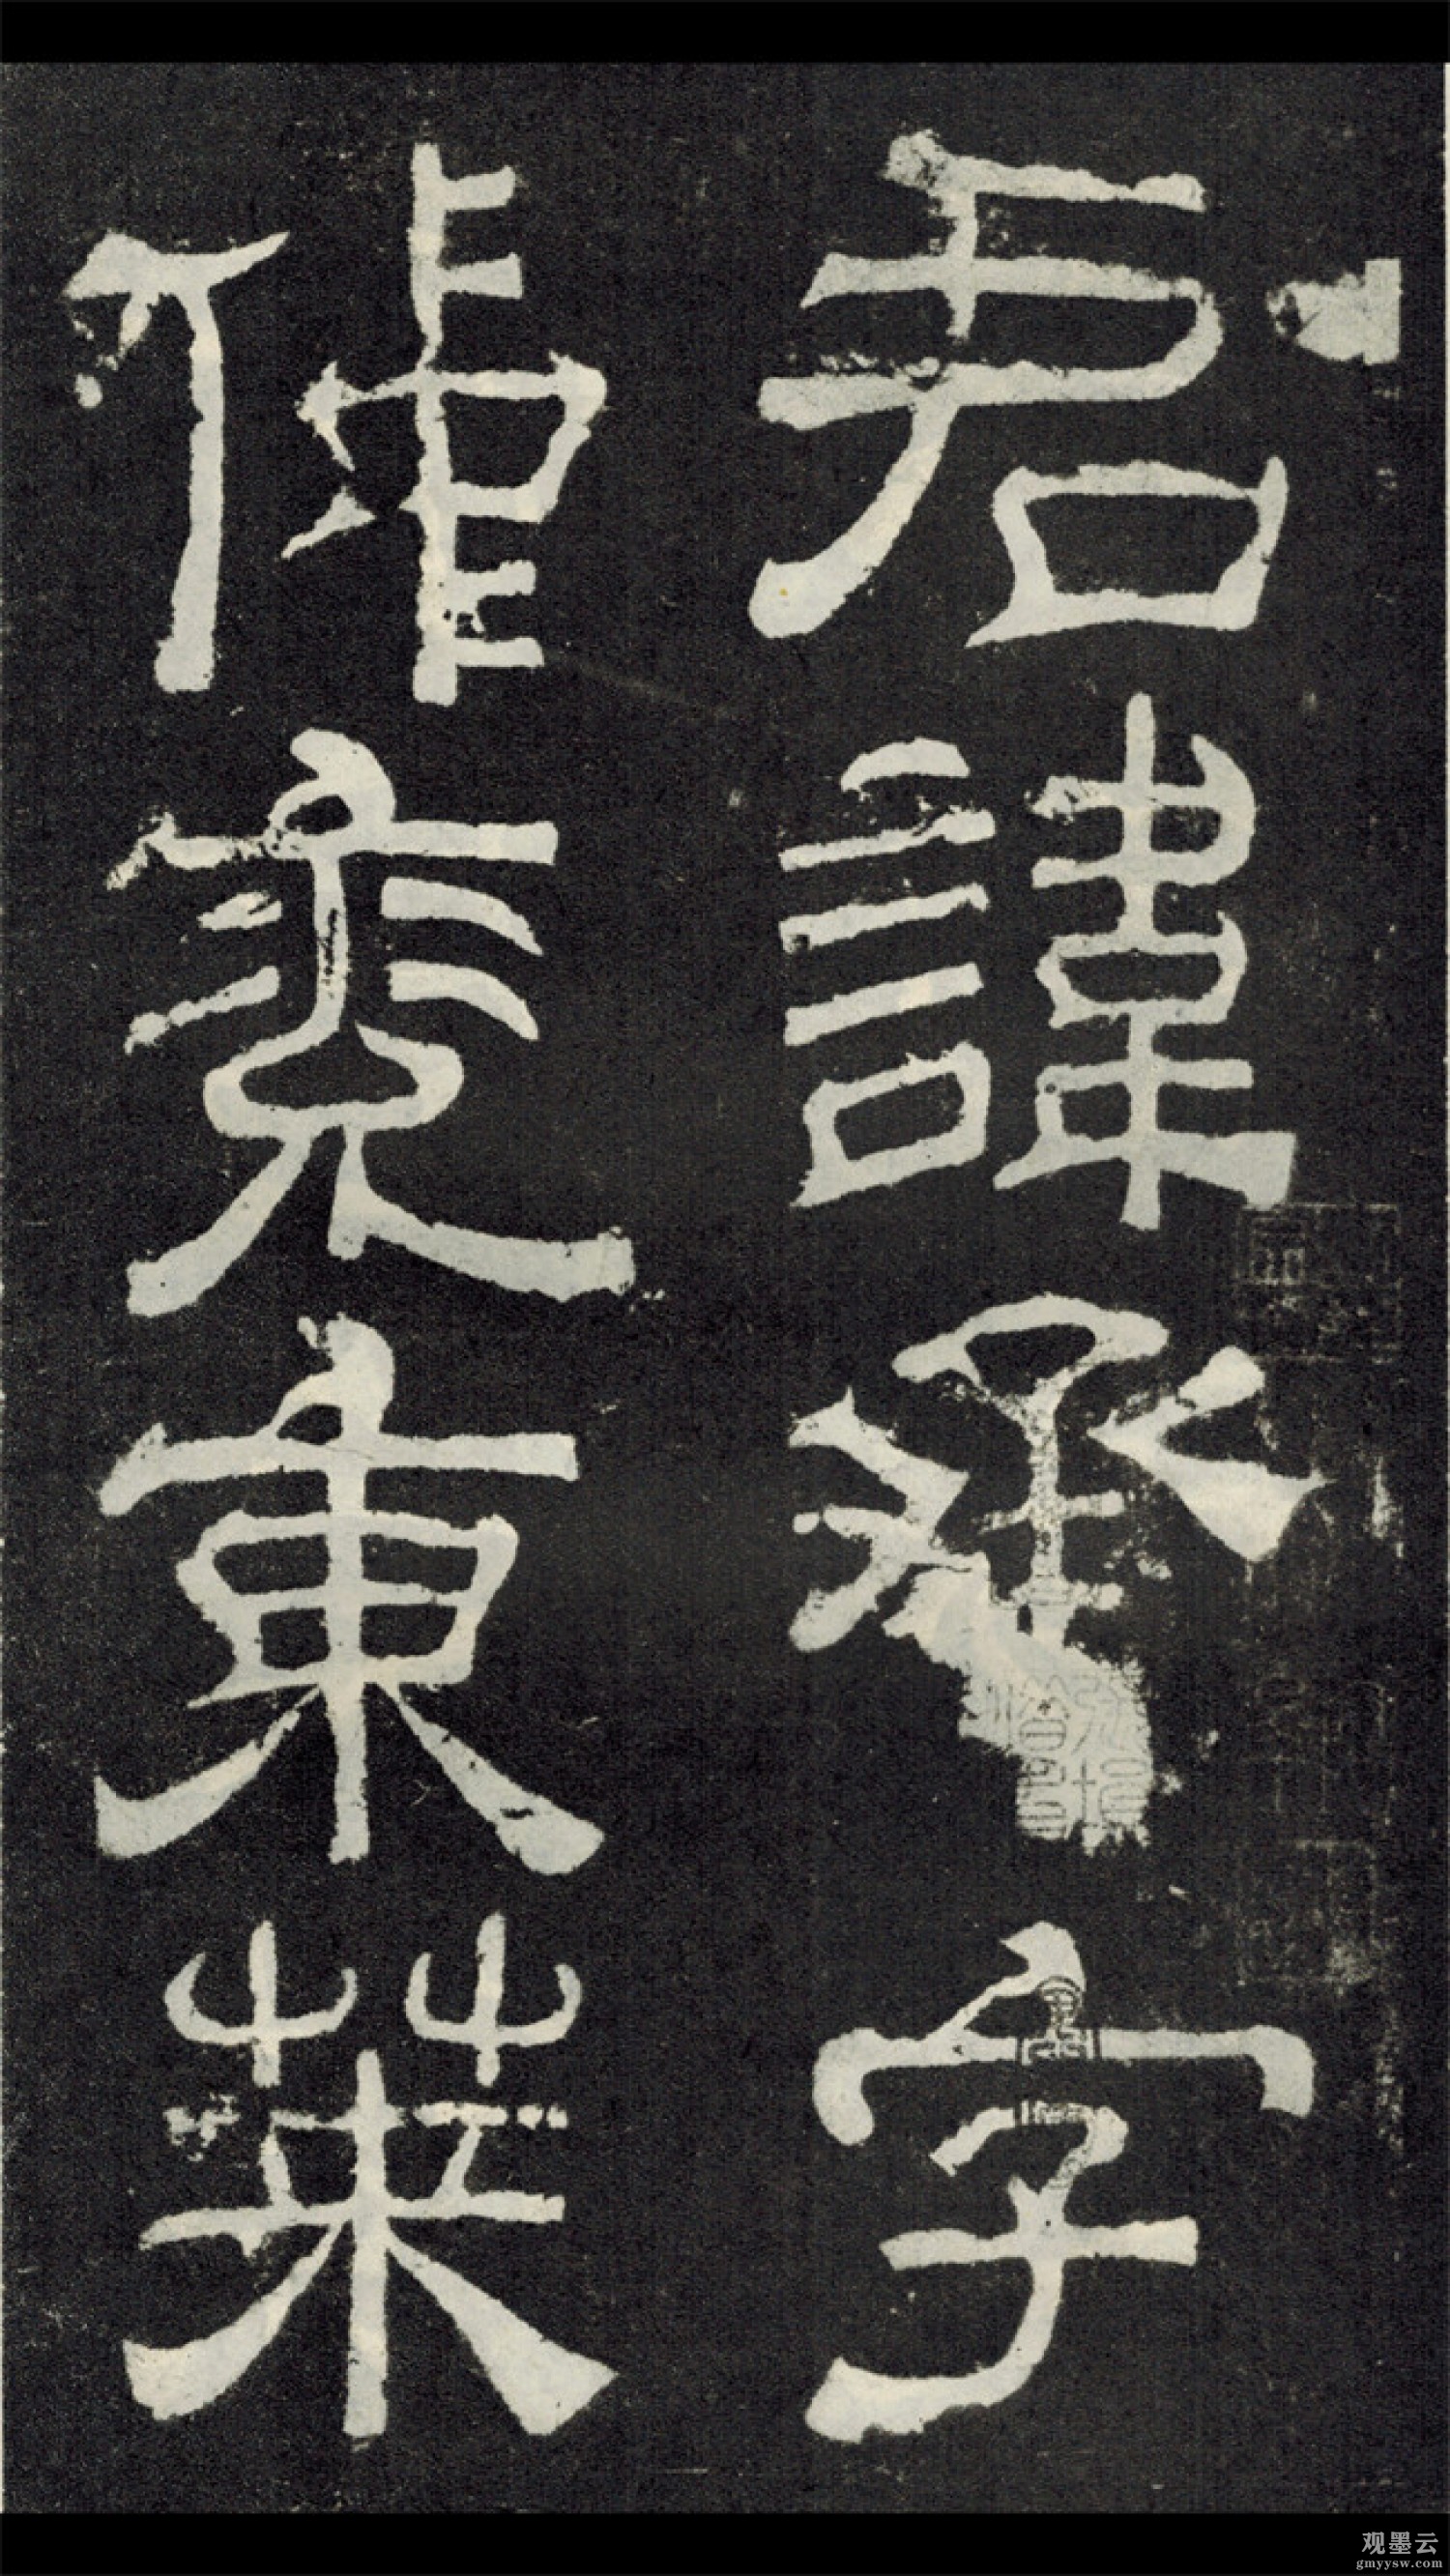 君諱承字
仲兖東萊
观墨云
gmyysw.com